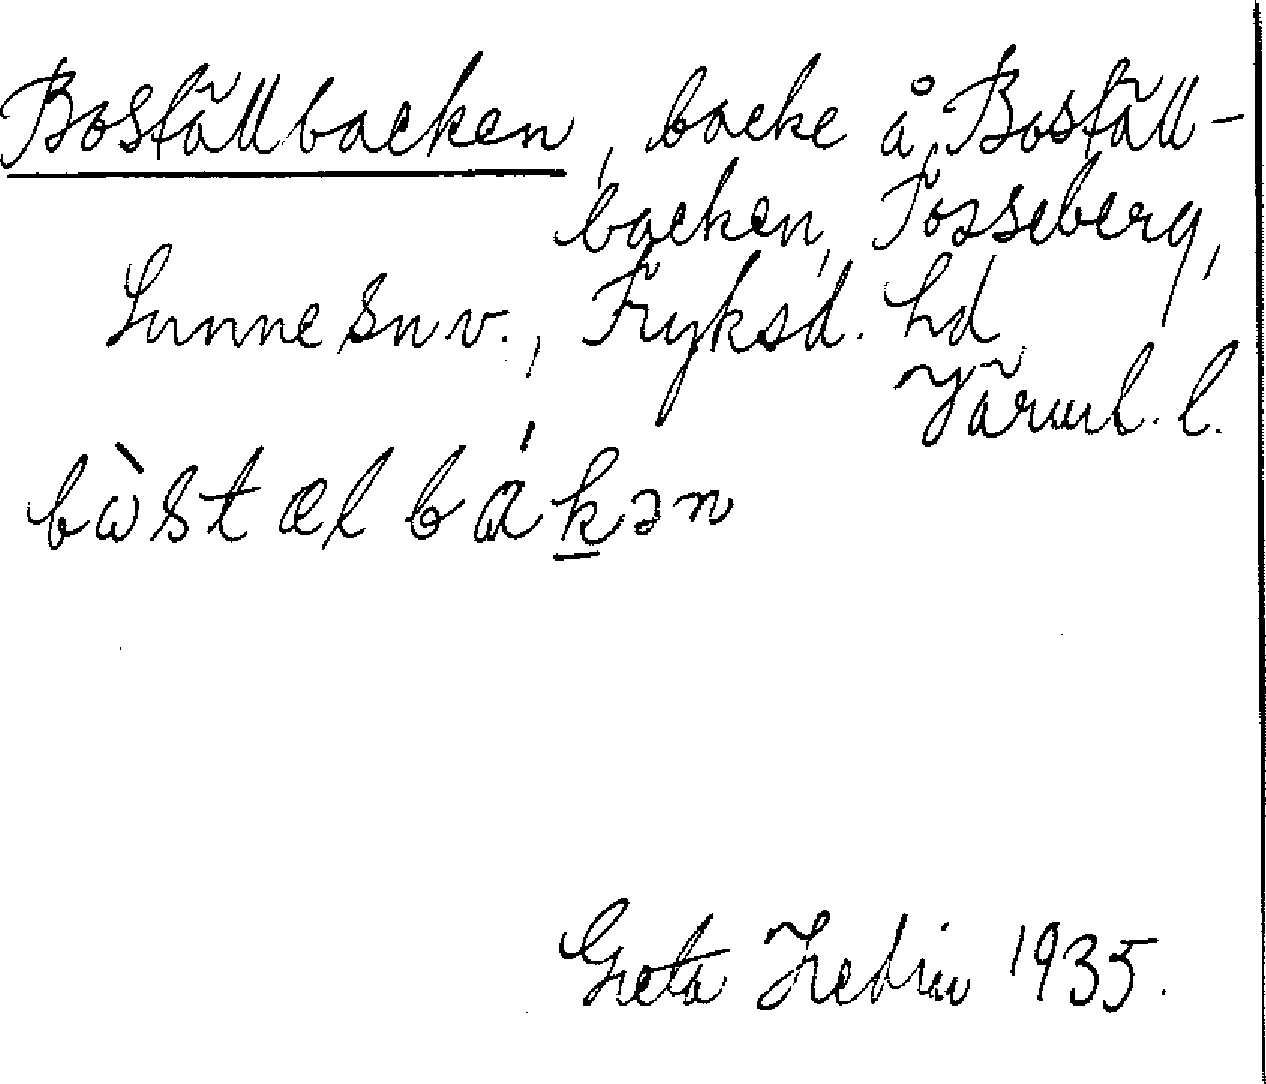 Boställbacken, backe å Boställ-
backen, Tosseberg,
Sunne sn v., Fryksd. hd
Värml. l.
bὼstælbákən
Greta Hedin 1935.